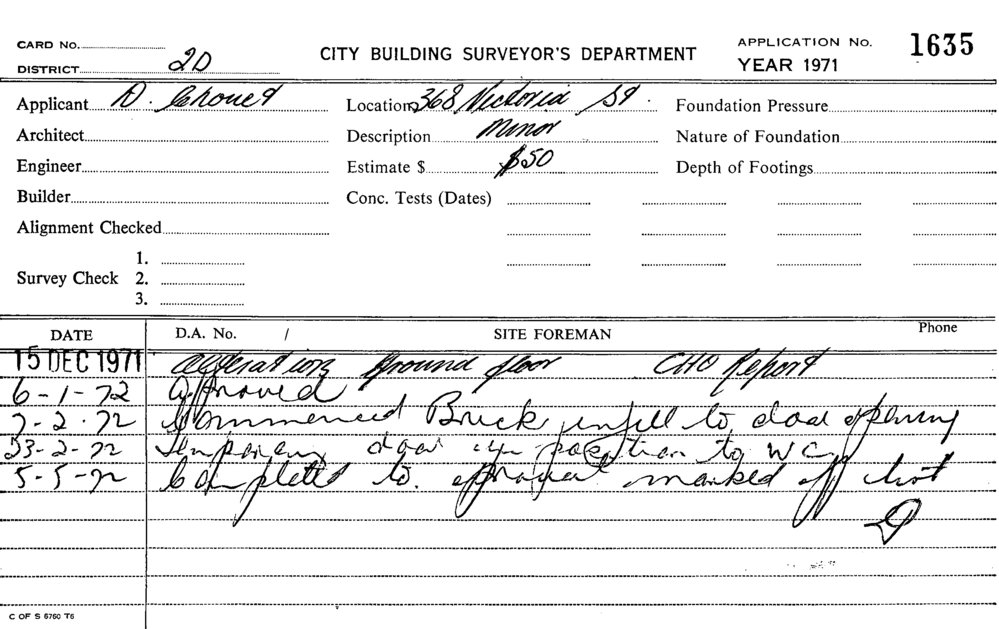 CARD No.
DISTRICT 2D
CITY BUILDING SURVEYOR'S DEPARTMENT
APPLICATION No. 1635
YEAR 1971
Applicant D. Location 368 Victoria St. Foundation Pressure
Architect Description Minor Nature of Foundation
Engineer Estimate $ $50 Depth of Footings
Builder Conc. Tests (Dates)
Alignment Checked
Survey Check 1.
2.
3.
DATE D.A. No. / SITE FOREMAN Phone
15 DEC 1971 alterations ground floor CHO Report
6-1-72 Approved
7-2-72 Commenced Brick infill to door opening
23-2-72 Temporary door in position to WC
5-5-72 Completed to approval marked off
C OF S 6760 T6